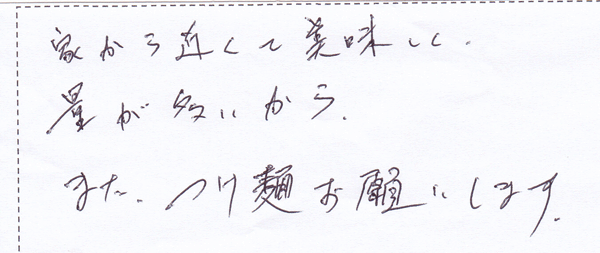 家から近くて美味しく、
量が多いから。
また、つけ麺お願いします。